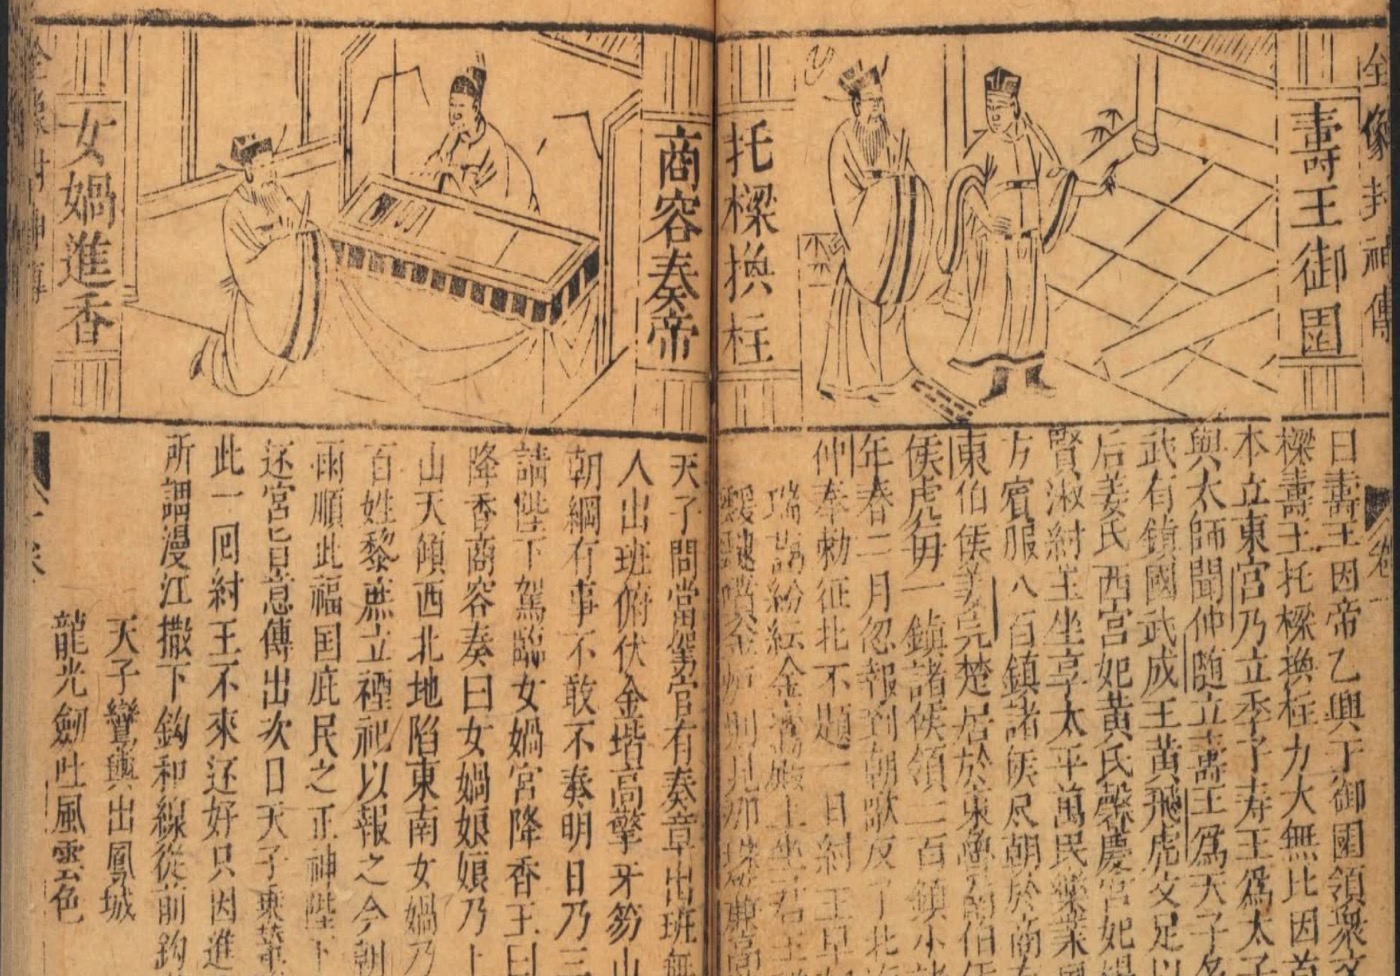 全像封神傳
壽王御園
托樑換柱
卷一
曰壽王因帝乙興于御園領衆文
樑壽王托樑換柱力大無比因首
本立東宮乃立季子寿王爲太子
與太師聞仲随立壽王爲天子名
武有鎮國武成王黃飛虎文足以
后姜氏西宮妃黃氏馨慶宮妃楊
賢淑紂王坐享太平萬民樂業風
方賓服八百鎮諸侯尽朝於商有
東伯侯姜元楚居於東魯
侯虎每一鎮諸侯領二百鎮小諸
年春二月忽報到朝歌反了北海
仲奉勑征北不題一日紂王早
瑞靄紛紜金鑾殿上坐君王
則見那珠簾高
商容奏帝
女媧進香
天子問當駕官有奏章出班無
人出班俯伏金堦高擎牙笏山
朝綱有事不敢不奏明日乃三
請陛下駕臨女媧宮降香王曰
降香商容奏曰女媧娘娘乃上
山天傾西北地陷東南女媧乃
百姓黎庶立禋祀以報之今朝
雨順此福国庇民之正神陛下
还宮旨意傳出次日天子乘輦
此一囘紂王不來还好只因進
所謂漫江撒下鈎和線從前鈎
天子鸞輿出鳳城
龍光劍吐風雲色